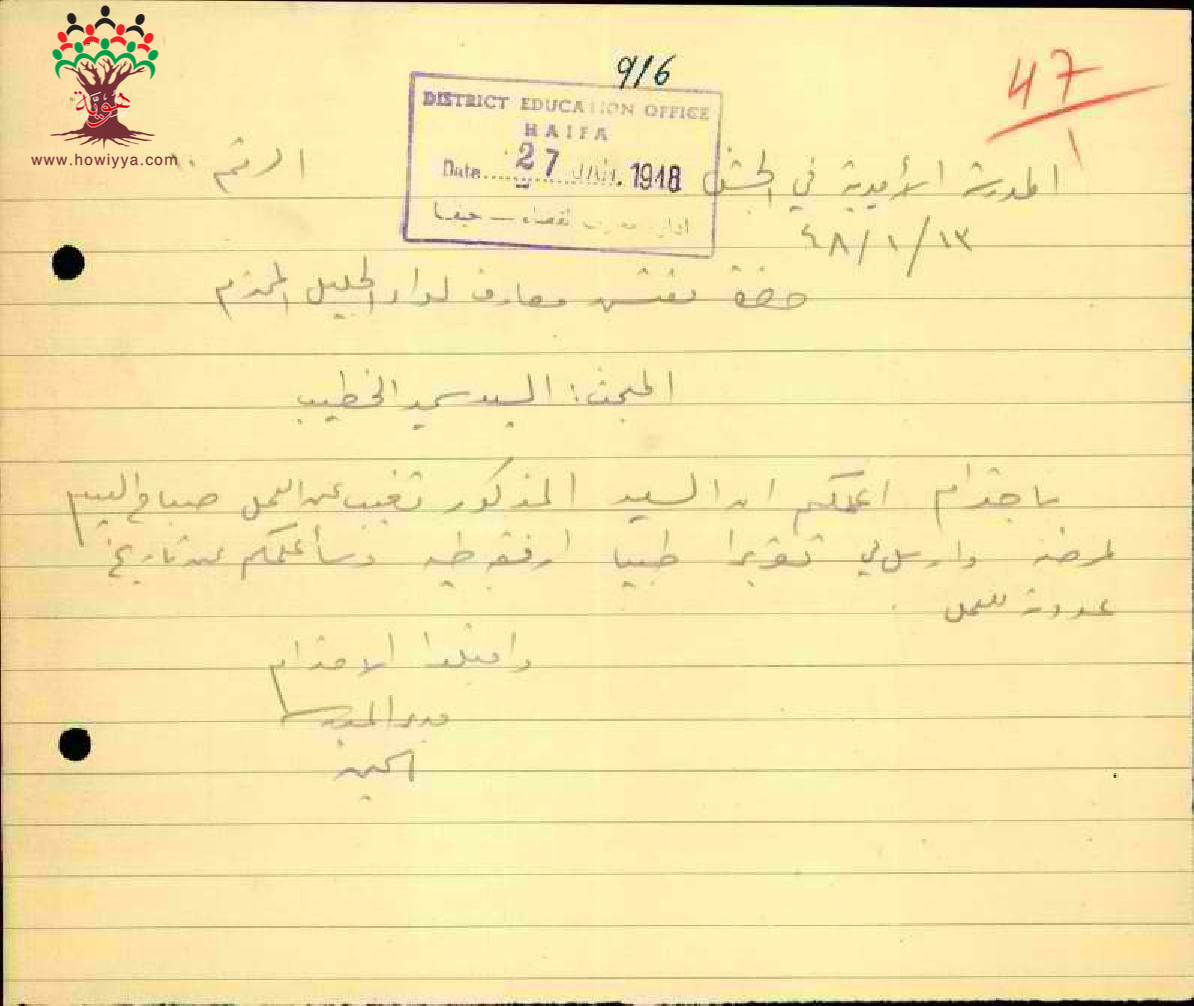 هوية
www.howiyya.com
9/6
47
DISTRICT EDUCATION OFFICE
HAIFA
Date 27 JAN. 1948
ادارة معارف قضاء - حيفا
المدرسة الأميرية في الجش
الرقم
٤٨/١/١٣
حضرة مفتش معارف لواء الجليل المحترم
المبحث: السيد الخطيب
باحترام اعلمكم ان السيد المذكور تغيب عن العمل صباح اليوم
لمرضه وارسل لي تقريرا طبيا ارفقه طيه وسأعلمكم عن تاريخ
عودته للعمل
واقبلوا الاحترام
مدير المدرسة